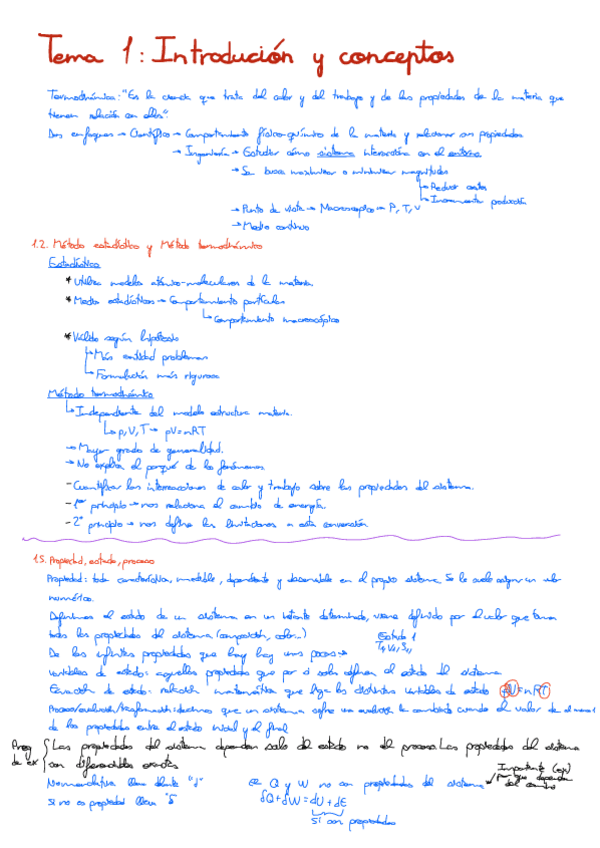 Tema 1: Introdución y conceptos
Termodinámica: "Es la ciencia que trata del calor y del trabajo y de las propiedades de la materia que
tienen relación con ellos".
Dos enfoques → Científico → Comportamiento físico-químico de la materia y relacionar con propiedades
→ Ingeniería → Estudiar cómo sistema interacciona con el entorno
→ Se busca maximizar o minimizar magnitudes
→ Reducir costes
→ Incrementar producción
→ Punto de vista → Macroscópico → P, T, V
→ Medio continuo
1.2. Método estadístico y Método termodinámico
Estadístico
* Utiliza modelos atómico-moleculares de la materia.
* Medios estadísticos → Comportamiento partículas
↳ Comportamiento macroscópico
* Válido según hipótesis
→ Más cantidad problemas
↳ Formulación más rigurosa
Método termodinámico
↳ Independiente del modelo estructura materia.
↳ p, V, T → pV = nRT
→ Mayor grado de generalidad.
→ No explica el porqué de los fenómenos.
- Cuantificar las interacciones de calor y trabajo sobre las propiedades del sistema.
- 1er principio → nos relaciona el cambio de energía.
- 2º principio → nos define las limitaciones a esta conversión
1.5. Propiedad, estado, proceso
Propiedad: toda característica, medible, dependiente y observable en el propio sistema. Se le suele asignar un valor
numérico.
Definimos el estado de un sistema en un instante determinado, viene definido por el valor que toman
todas las propiedades del sistema (composición, calor...)
Estado 1
T₁, V₁, S₁,
De las infinitas propiedades que hay hay unas pocas →
Variables de estado: aquellas propiedades que por si solas definen al estado del sistema
Ecuación de estado: relación matemática que liga las distintas variables de estado pV = nRT
Proceso/evolución/transformación: decimos que un sistema sufre una evolución o cambio cuando el valor de al menos
de las propiedades entre el estado inicial y el final
Preg de ex { Las propiedades del sistema dependen solo del estado no del proceso. Las propiedades del sistema
son diferenciales exactas
Nomenclatura lleva delante "d"
Si no es propiedad lleva "δ"
Q y W no son propiedades del sistema
Importante (ojo)
δQ + δW = dU + dE
sí son propiedades